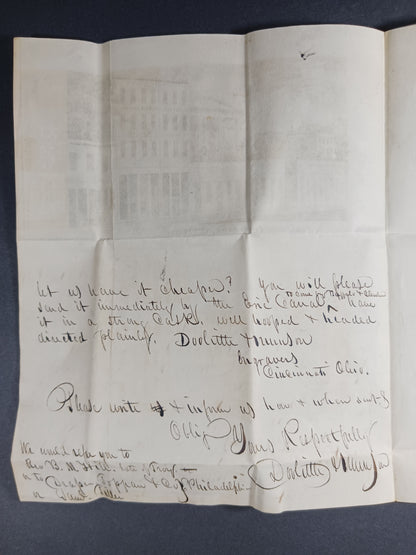 let us have it cheaper? You will please
to come by Buffalo & Cleveland
send it immediately by the Erie Canal have
it in a strong Cask. well hooped & headed
directed plainly. Doolittle & Munson
Engravers
Cincinnati Ohio.
Please write & inform us how & when sent &
Oblige Yours Respectfully
Doolittle & Munson
We would refer you to
Rev B. M. Hill. late of Troy
or to Draper Toppan & Co. Philadelphia
or